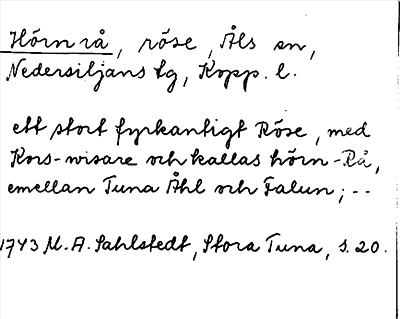 Hörn rå, röse, Åls sn,
Nedersiljans tg, Kopp. l.
ett stort fyrkantigt Röse, med
Kors-wisare och kallas hörn-Rå,
emellan Tuna Åhl och Falun; --
1743 M. A. Sahlstedt, Stora Tuna, s. 20.